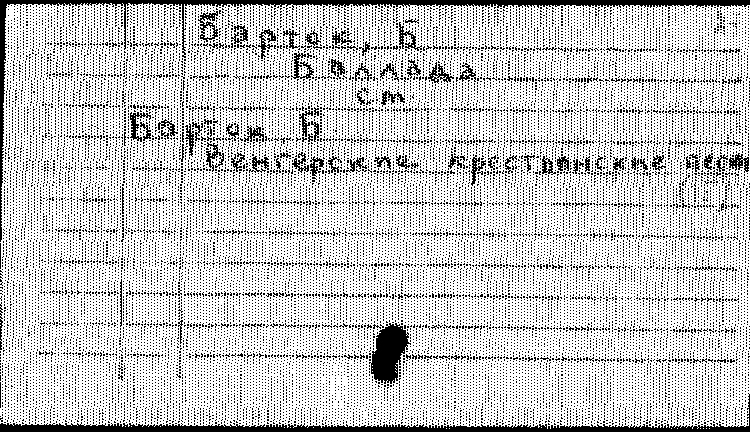 Барток, Б
Баллада
см
Барток Б
Венгерские крестьянские песни